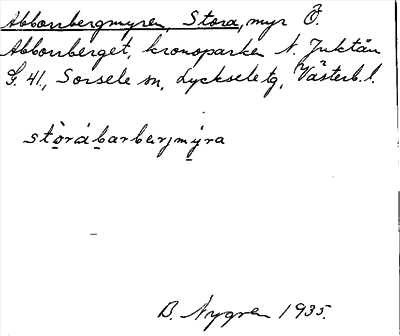 Abborrbergmyren, Stora, myr Ö.
Abborrberget, kronoparken N. Juktån
G. 41, Sorsele sn, Lycksele tg, Västerb. l.
stòrábarbærjmýra
B. Nygren 1935.